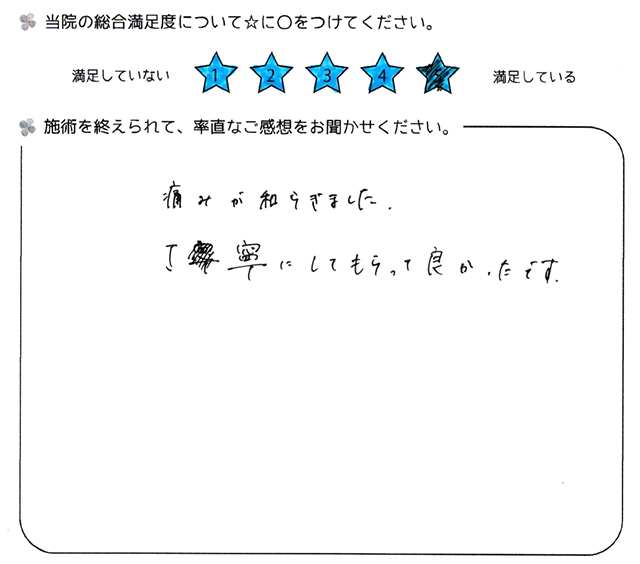 当院の総合満足度について☆に○をつけてください。
満足していない 1 2 3 4 5 満足している
施術を終えられて、率直なご感想をお聞かせください。
痛みが和らぎました.
丁寧にしてもらって良かったです.